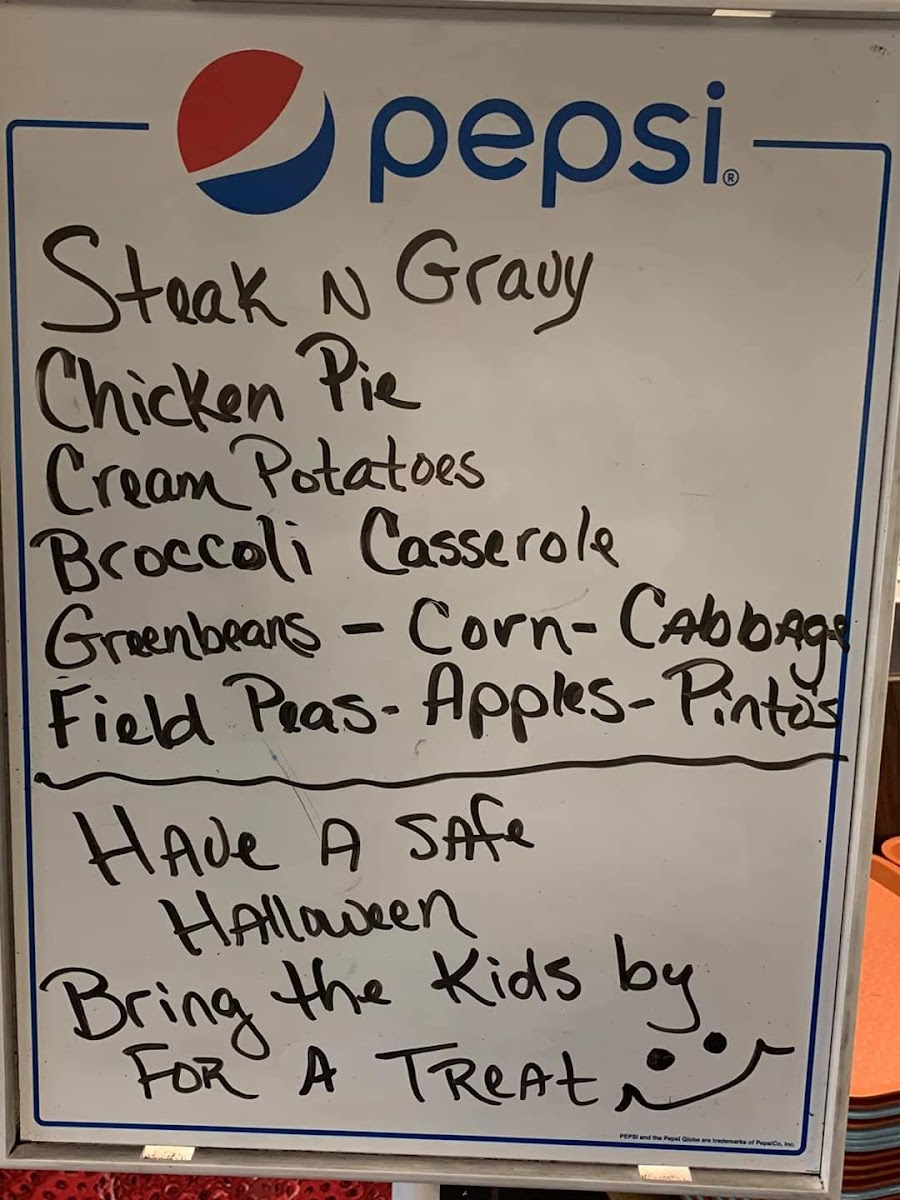 pepsi®
Steak N Gravy
Chicken Pie
Cream Potatoes
Broccoli Casserole
Greenbeans - Corn - Cabbage
Field Peas - Apples - Pintos
Have A Safe
Halloween
Bring the Kids by
For A Treat
PEPSI and the Pepsi Globe are trademarks of PepsiCo, Inc.